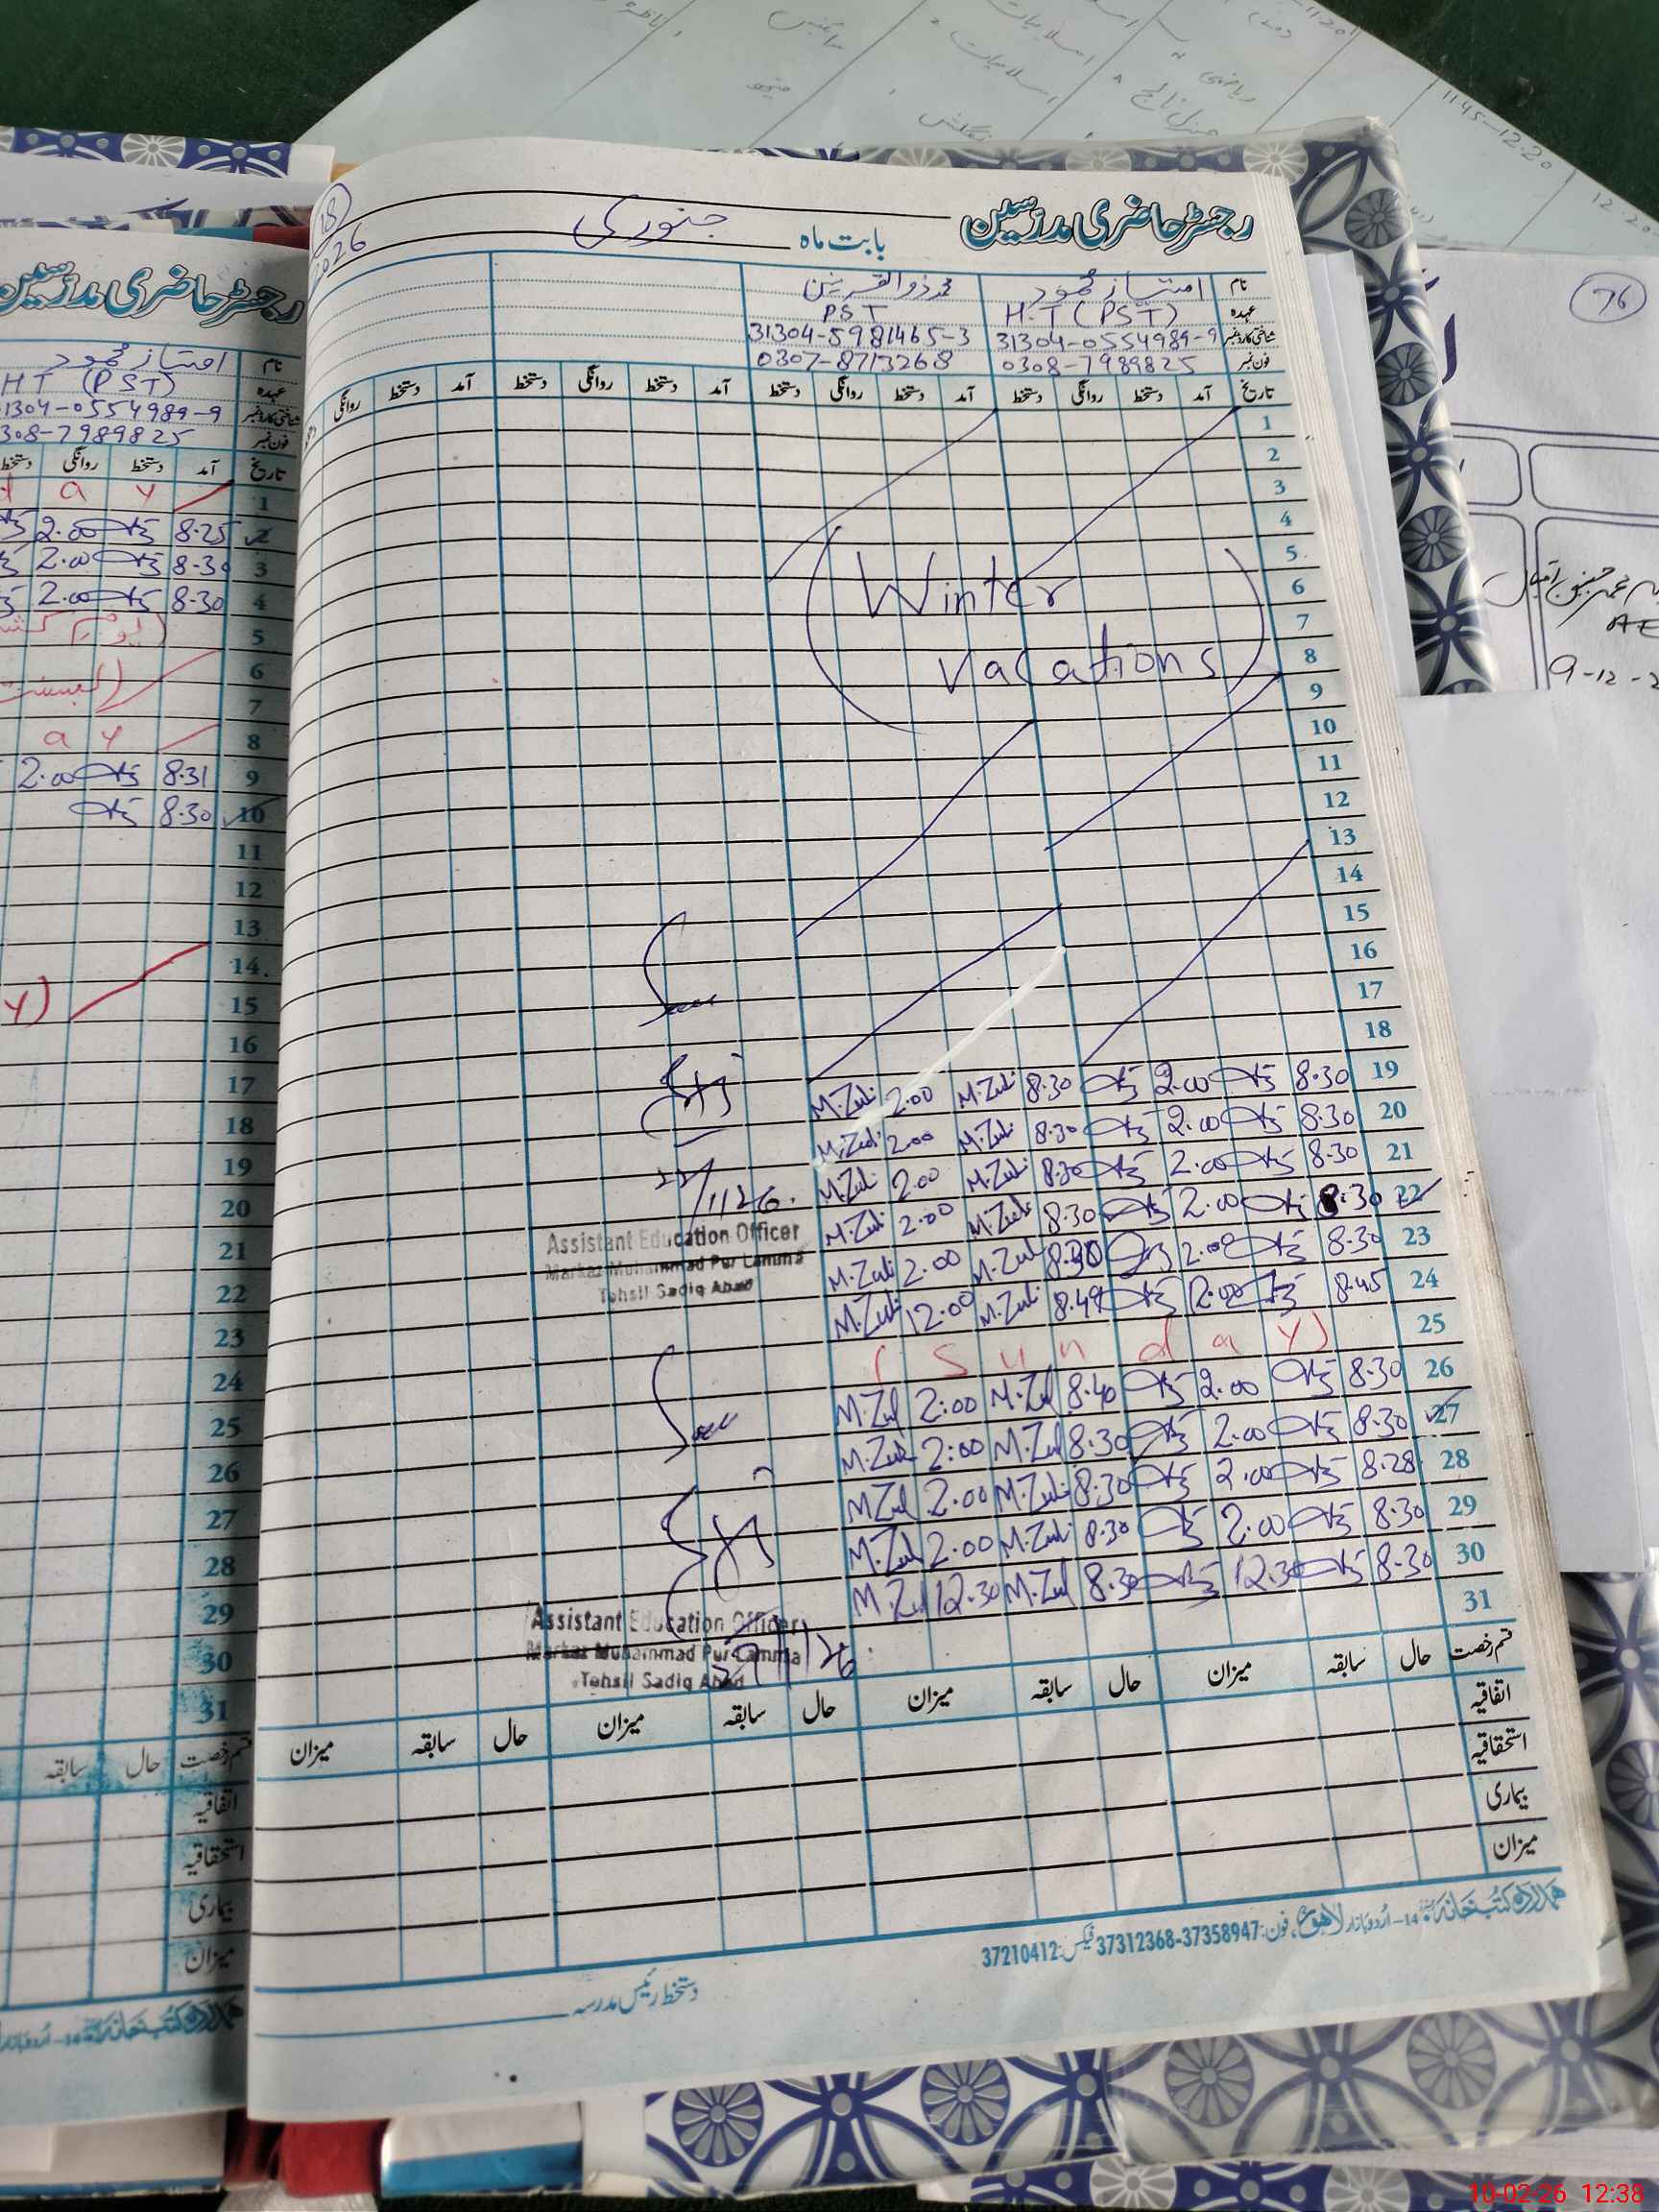 رجسٹر حاضری مدرسین
بابت ماہ جنوری
18
2026
نام امتیاز محمود محمد ذوالقرنین
عہدہ H.T (PST) PST
شناختی کارڈ نمبر 31304-0554989-9 31304-5981465-3
فون نمبر 0308-7989825 0307-8713268
تاریخ آمد دستخط روانگی دستخط آمد دستخط روانگی دستخط آمد دستخط روانگی دستخط آمد دستخط روانگی
1
2
3
4
5
6
7
8
9
10
11
12
13
14
15
16
17
18
(Winter
Vacations)
19 8.30 2.00 8.30 M.Zul 2.00 M.Zul
20 8.30 2.00 8.30 M.Zul 2.00 M.Zul
21 8.30 2.00 8.30 M.Zul 2.00 M.Zul
22 8.30 2.00 8.30 M.Zul 2.00 M.Zul
23 8.30 2.00 8.30 M.Zul 2.00 M.Zul
24 8.45 12.00 8.49 M.Zul 12.00 M.Zul
25 (Sunday)
26 8.30 2.00 8.40 M.Zul 2:00 M.Zul
27 8.30 2.00 8.30 M.Zul 2:00 M.Zul
28 8.28 2.00 8.30 M.Zul 2.00 M.Zul
29 8.30 2.00 8.30 M.Zul 2.00 M.Zul
30 8.30 12.30 8.30 M.Zul 12.30 M.Zul
31
22/1/26.
Assistant Education Officer
Markaz Muhammad Pur Lamma
Tehsil Sadiq Abad
Assistant Education Officer
Markaz Muhammad Pur Lamma
Tehsil Sadiq Abad
قسم رخصت حال سابقہ میزان حال سابقہ میزان حال سابقہ میزان حال سابقہ میزان
اتفاقیہ
استحقاقیہ
بیماری
میزان
ہمدرد کتب خانہ 14-اردو بازار لاہور، فون: 37358947-37312368 فیکس: 37210412
دستخط رئیس مدرسہ
رجسٹر حاضری مدرسین
نام امتیاز محمود
عہدہ HT (PST)
شناختی کارڈ نمبر 1304-0554989-9
فون نمبر 308-7989825
تاریخ آمد دستخط روانگی دستخط
1 d a y
2 8.25 2.00
3 8.30 2.00
4 8.30 2.00
5
6
7
8 a y
9 8.31 2.00
10 8.30
11
12
13
14
15 y)
16
17
18
19
20
21
22
23
24
25
26
27
28
29
30
31
قسم رخصت حال سابقہ
اتفاقیہ
استحقاقیہ
بیماری
میزان
11:45-12:20
ریاضی
جنرل نالج
اسلامیات
انگلش
76
9-12-2
10-02-26 12:38